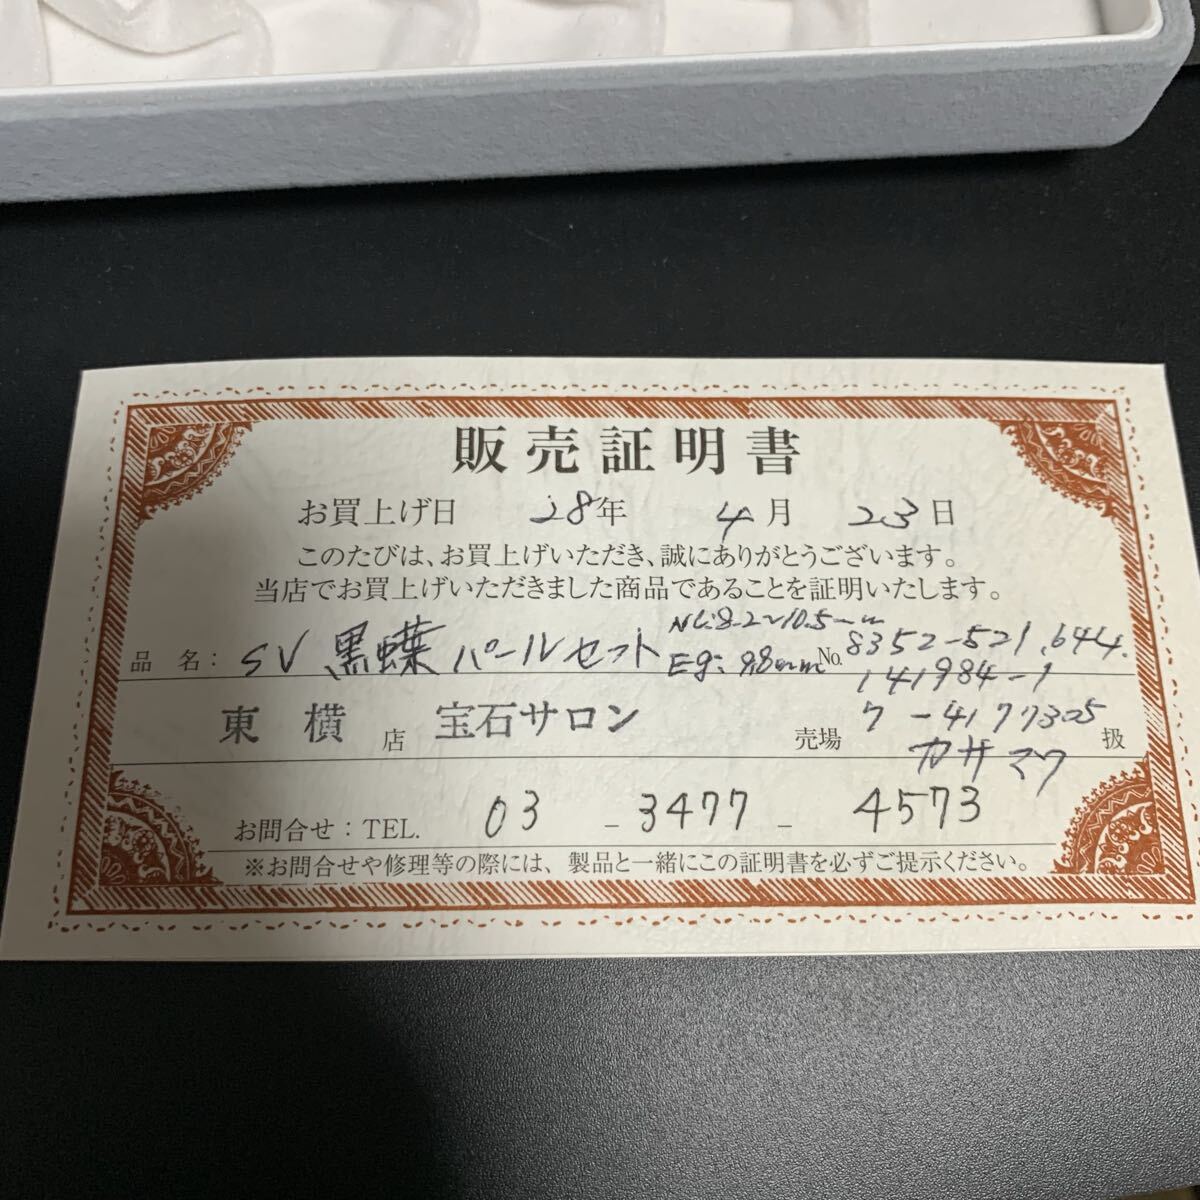 販売証明書
お買上げ日 28年 4月 23日
このたびは、お買上げいただき、誠にありがとうございます。
当店でお買上げいただきました商品であることを証明いたします。
NC:8.2~10.5mm
品名: SV 黒蝶パールセット Eg:9.8mm No. 8352-521,644.
141984-1
東横店 宝石サロン 売場 7-4177305 扱
カサマワ
お問合せ:TEL. 03-3477-4573
※お問合せや修理等の際には、製品と一緒にこの証明書を必ずご提示ください。